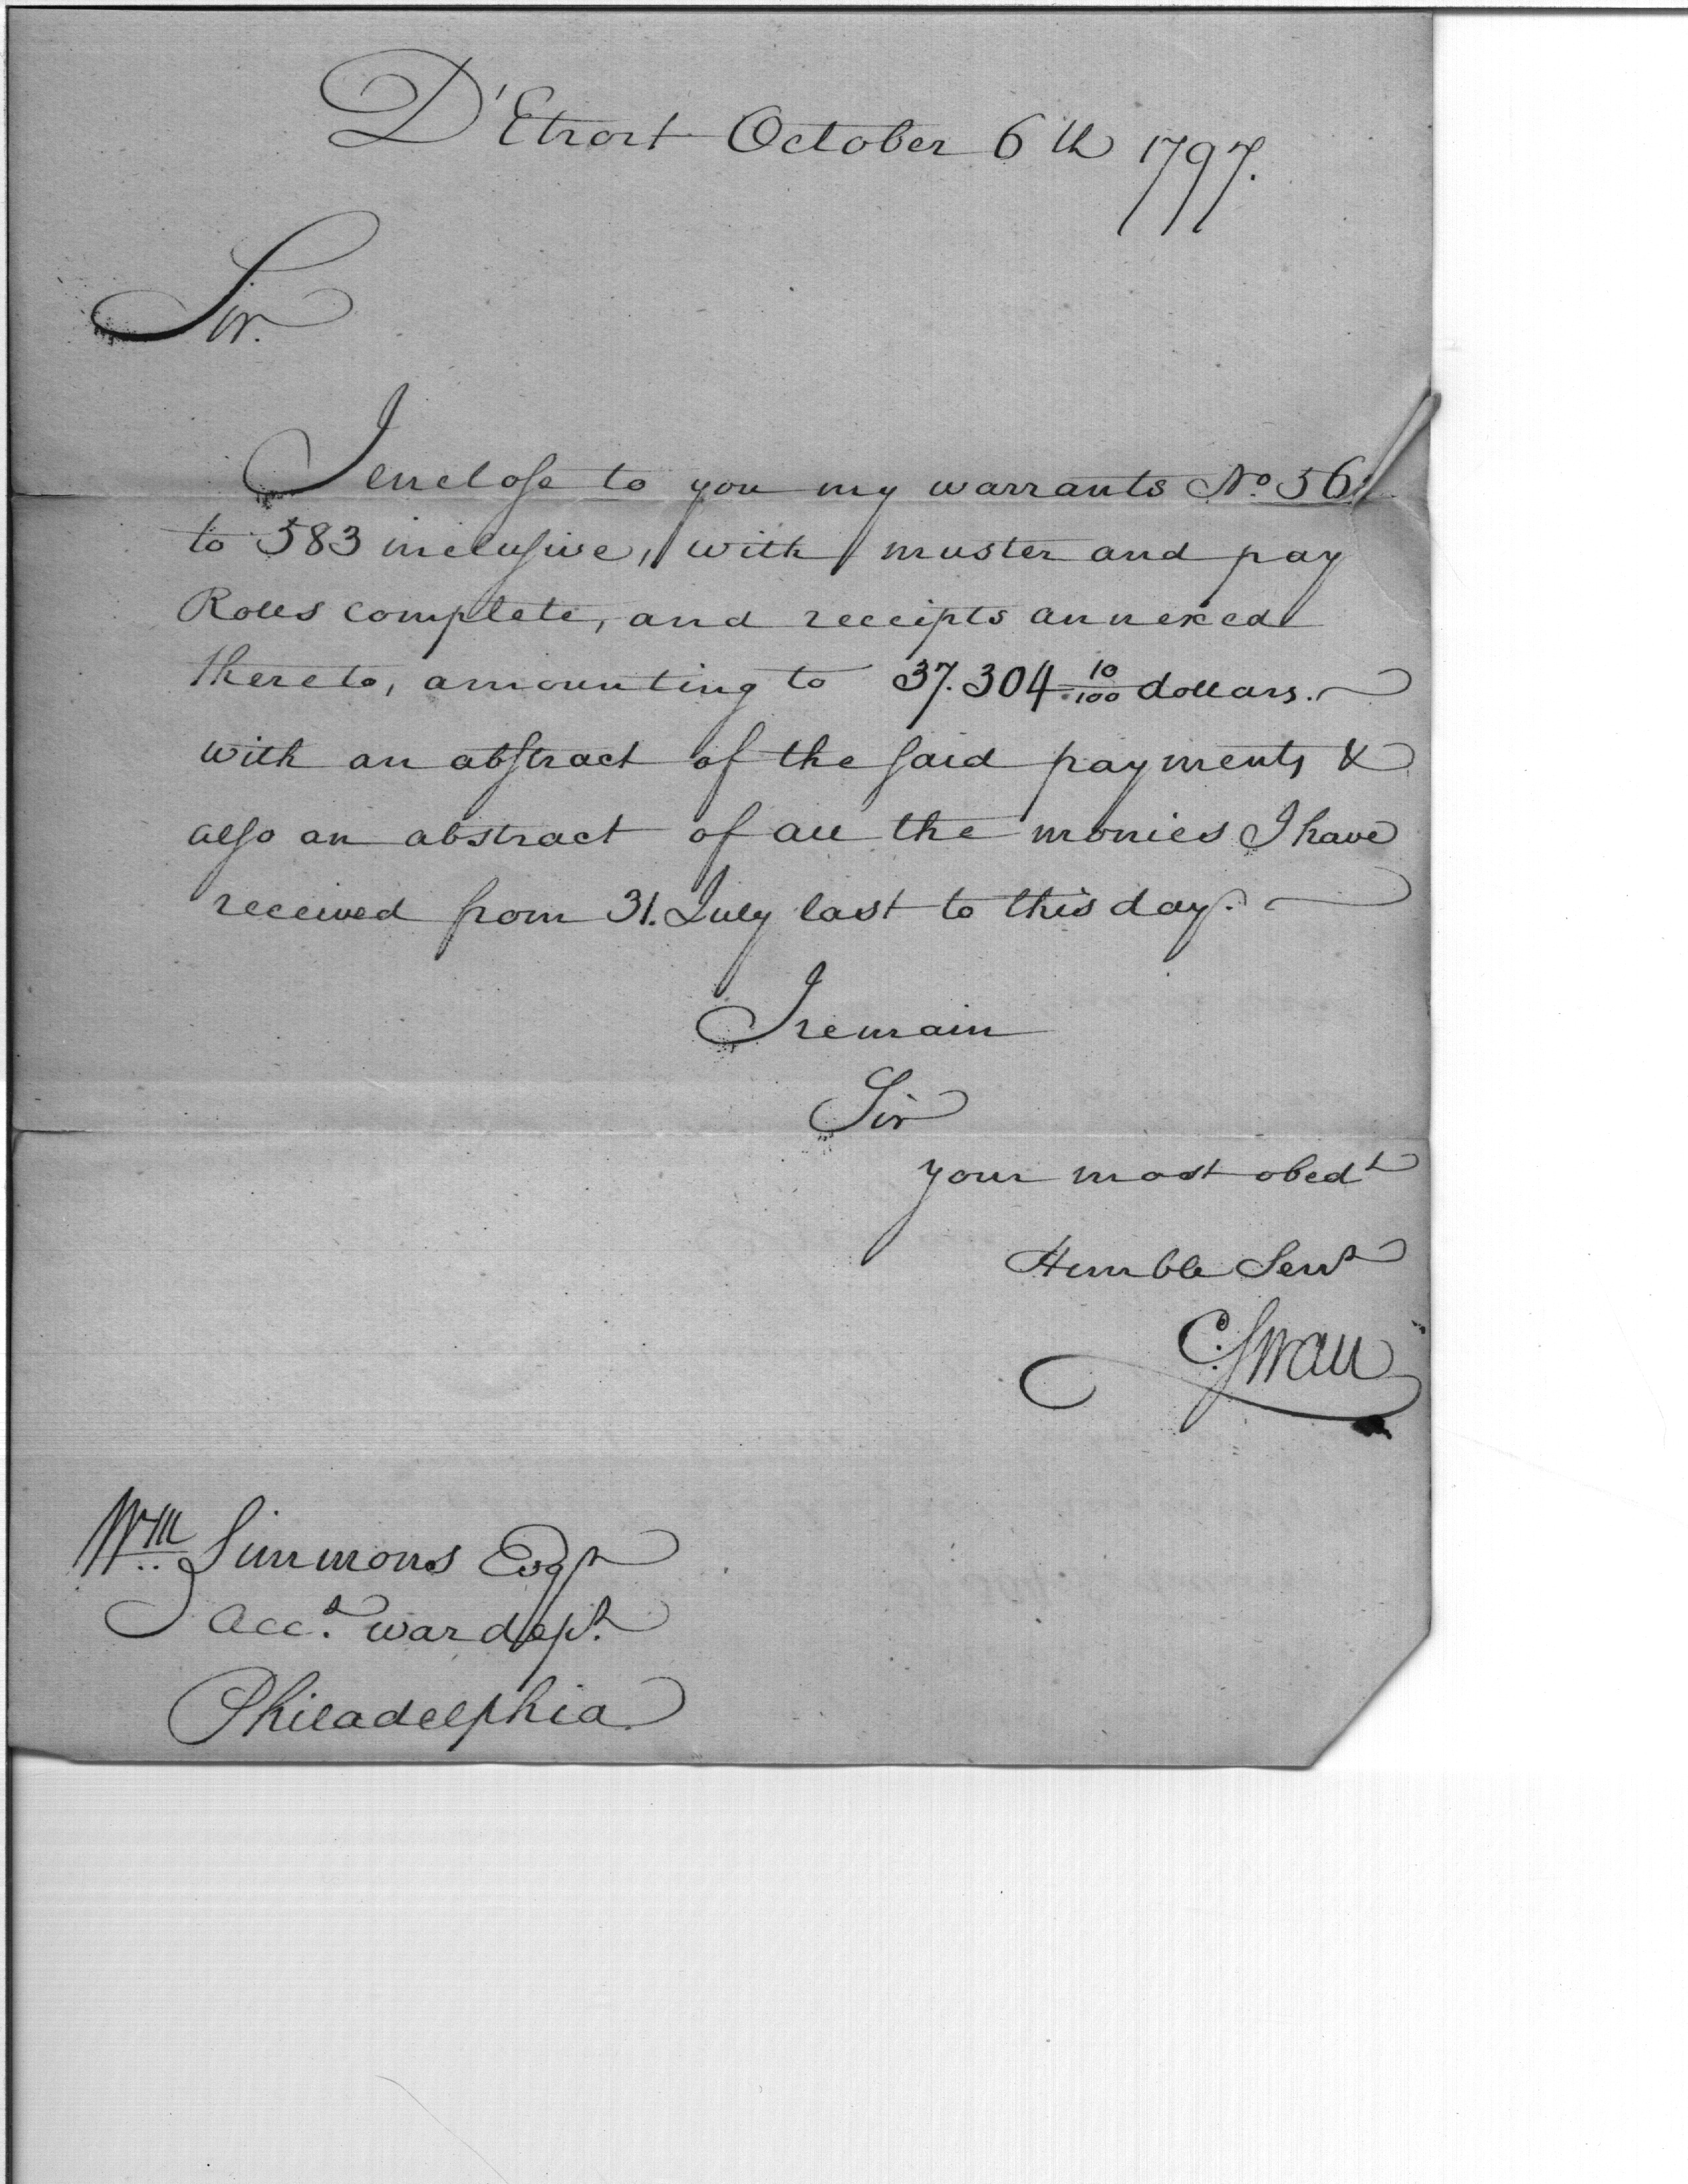 D'Etroit October 6th 1797.
Sir.
I enclose to you my warrants No. 56
to 583 inclusive, with muster and pay
Rolls complete, and receipts annexed
thereto, amounting to 37.304 10/100 dollars.
with an abstract of the said payments &
also an abstract of all the monies I have
received from 31. July last to this day.
I remain
Sir
your most obedt
Humble Servt
C. Swan
Wm Simmons Esqr
Acct. war dept.
Philadelphia